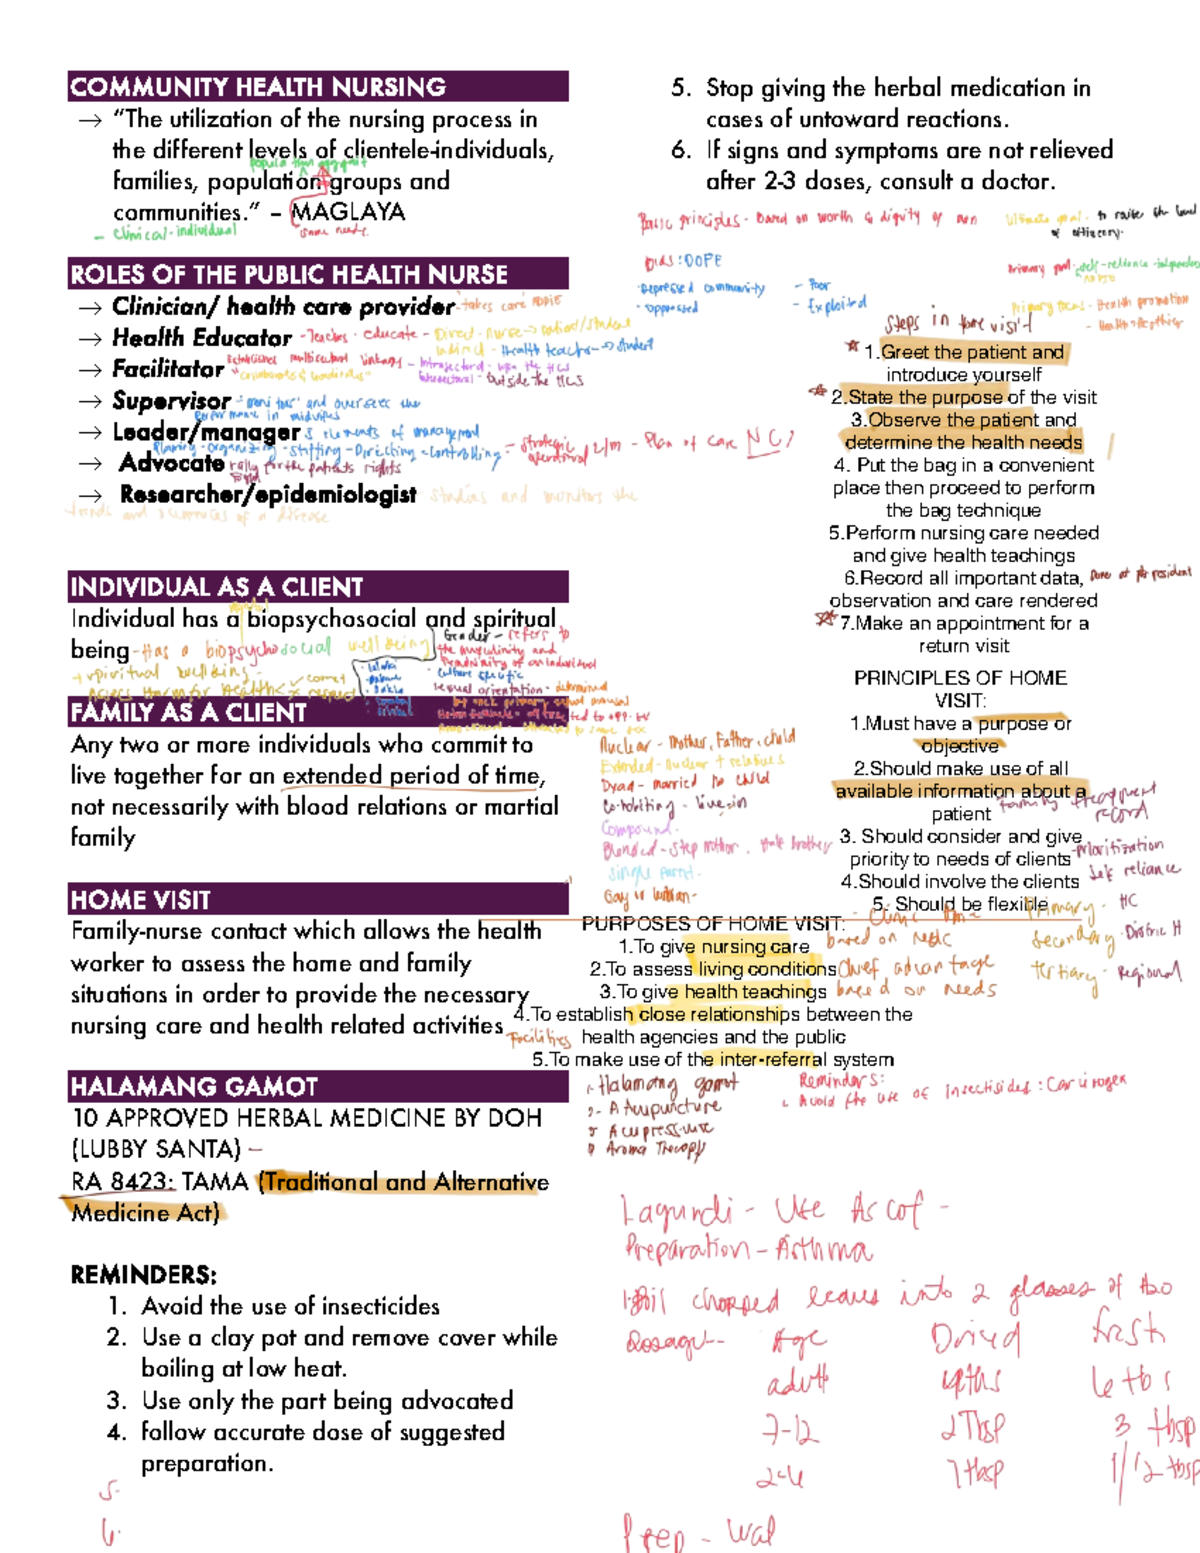 COMMUNITY HEALTH NURSING
→ “The utilization of the nursing process in
the different levels of clientele-individuals,
families, population groups and
communities.” – MAGLAYA
- Clinical - individual
same needs
ROLES OF THE PUBLIC HEALTH NURSE
→ Clinician/ health care provider - takes care
→ Health Educator - Teaches - educate - Direct - nurse → patient/student
Indirect - Health teacher → student
→ Facilitator Establishes multisectoral linkages - Intrasectoral - w/in the HCS
Intersectoral - outside the HCS
→ Supervisor - monitors and oversees the
performance in midwives
→ Leader/manager 5 elements of management
Planning - organizing - staffing - Directing - controlling - strategic
operational - Plan of care NCP
→ Advocate rally for the patients rights
→ Researcher/epidemiologist studies and monitors the
trends and occurrences of a disease
INDIVIDUAL AS A CLIENT
Individual has a biopsychosocial and spiritual
being - Has a biopsychosocial well being
+ spiritual wellbeing
Gender - refers to
the masculinity and
femininity of an individual
culture specific
sexual orientation - determined
FAMILY AS A CLIENT
Any two or more individuals who commit to
live together for an extended period of time,
not necessarily with blood relations or martial
family
HOME VISIT
Family-nurse contact which allows the health
worker to assess the home and family
situations in order to provide the necessary
nursing care and health related activities
HALAMANG GAMOT
10 APPROVED HERBAL MEDICINE BY DOH
(LUBBY SANTA) –
RA 8423: TAMA (Traditional and Alternative
Medicine Act)
REMINDERS:
1. Avoid the use of insecticides
2. Use a clay pot and remove cover while
boiling at low heat.
3. Use only the part being advocated
4. follow accurate dose of suggested
preparation.
5.
6.
5. Stop giving the herbal medication in
cases of untoward reactions.
6. If signs and symptoms are not relieved
after 2-3 doses, consult a doctor.
Basic principles - Based on worth & dignity of man
Ultimate goal - to raise the level
of efficiency.
Bias: DOPE
Depressed community
- oppressed
- Poor
- Exploited
Primary goal - self-reliance
Primary focus - Health promotion
Steps in home visit
1.Greet the patient and
introduce yourself
2.State the purpose of the visit
3.Observe the patient and
determine the health needs
4. Put the bag in a convenient
place then proceed to perform
the bag technique
5.Perform nursing care needed
and give health teachings
6.Record all important data,
observation and care rendered
7.Make an appointment for a
return visit
PRINCIPLES OF HOME
VISIT:
1.Must have a purpose or
objective
2.Should make use of all
available information about a
patient family treatment
record
3. Should consider and give
priority to needs of clients - prioritization
4.Should involve the clients Self reliance
5. Should be flexible
Primary - HC
Secondary - District H
Tertiary - Regional
Nuclear - Mother, Father, child
Extended - Nuclear + relatives
Dyad - married no child
Cohabiting - live-in
Compound
Blended - step mother, half brother
single parent
Gay or lesbian
PURPOSES OF HOME VISIT:
1.To give nursing care
2.To assess living conditions Chief advantage
3.To give health teachings based on needs
4.To establish close relationships between the
Facilities health agencies and the public
5.To make use of the inter-referral system
1 - Halamang gamot
2 - Acupuncture
3 Acupressure
4 Aroma Therapy
Reminders:
1. Avoid the use of insecticides: Carcinogen
Lagundi - Use Ascof -
Preparation - Asthma
1. Boil chopped leaves into 2 glasses of H2O
Dosage - Age Dried fresh
adult 4 tbs 6 tbs
7-12 2 Tbsp 3 tbsp
2-6 1 tbsp 1 1/2 tbsp
Prep - Wal